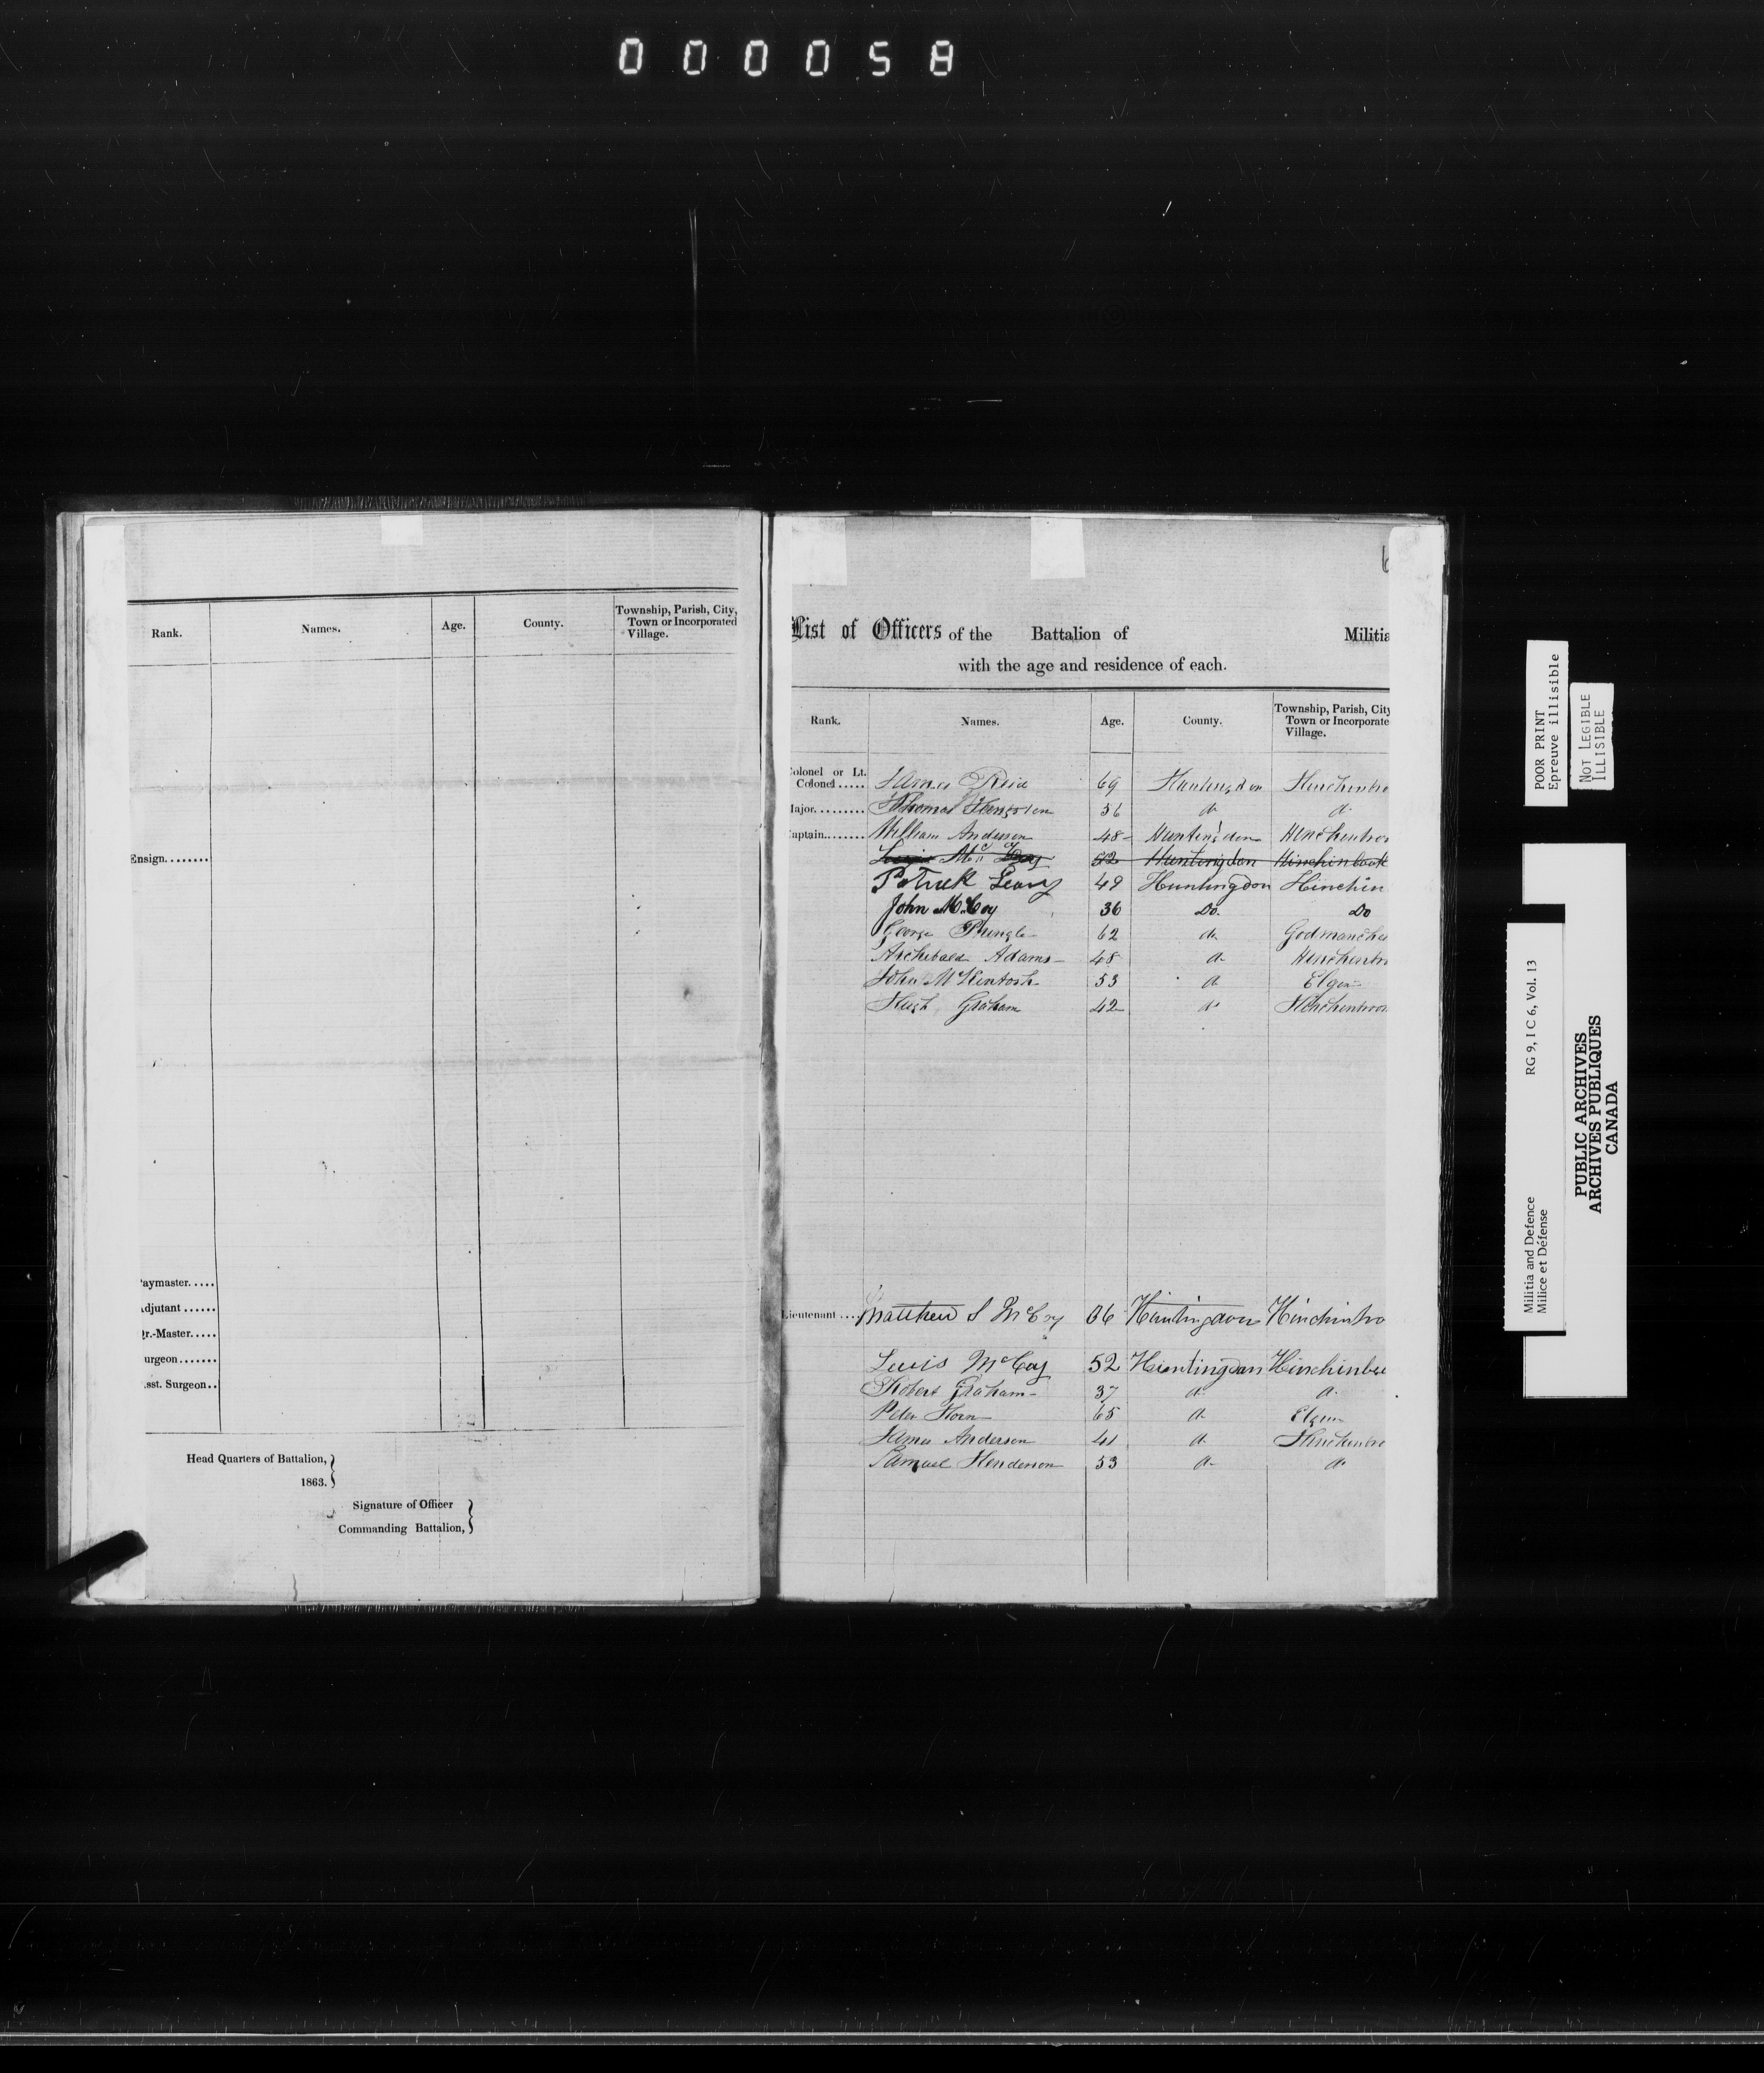 0 0 0 0 5 8
Rank. Names. Age. County. Township, Parish, City,
Town or Incorporated
Village.
Ensign........
aymaster.....
djutant......
r.-Master.....
urgeon.......
sst. Surgeon..
Head Quarters of Battalion,
1863.
Signature of Officer
Commanding Battalion,
6
List of Officers of the Battalion of Militia
with the age and residence of each.
Rank. Names. Age. County. Township, Parish, City
Town or Incorporate
Village.
olonel or Lt.
Colonel..... James Reid 69 Huntingdon Hinchinbro
ajor......... Thomas 56 do do
aptain....... William Anderson 48 Huntingdon Hinchinbroo
Louis McCoy 52 Huntingdon Hinchinbook
Patrick Leary 49 Huntingdon Hinchin
John McCoy 36 Do. Do
George Pringle 62 do Godmanches
Archibald Adams 48 do Hinchinbro
John McKintosh 53 do Elgin
Hugh Graham 42 do Hinchinbroo
Lieutenant... Matthew S McCoy 36 Huntingdon Hinchinbro
Luis McCoy 52 Huntingdon Hinchinbro
Robert Graham 37 do do
Peter Horn 65 do Elgin
James Anderson 41 do Hinchinbro
Samuel Henderson 53 do do
POOR PRINT
Epreuve illisible
NOT LEGIBLE
ILLISIBLE
Militia and Defence RG 9, I C 6, Vol. 13
Milice et Défense
PUBLIC ARCHIVES
ARCHIVES PUBLIQUES
CANADA